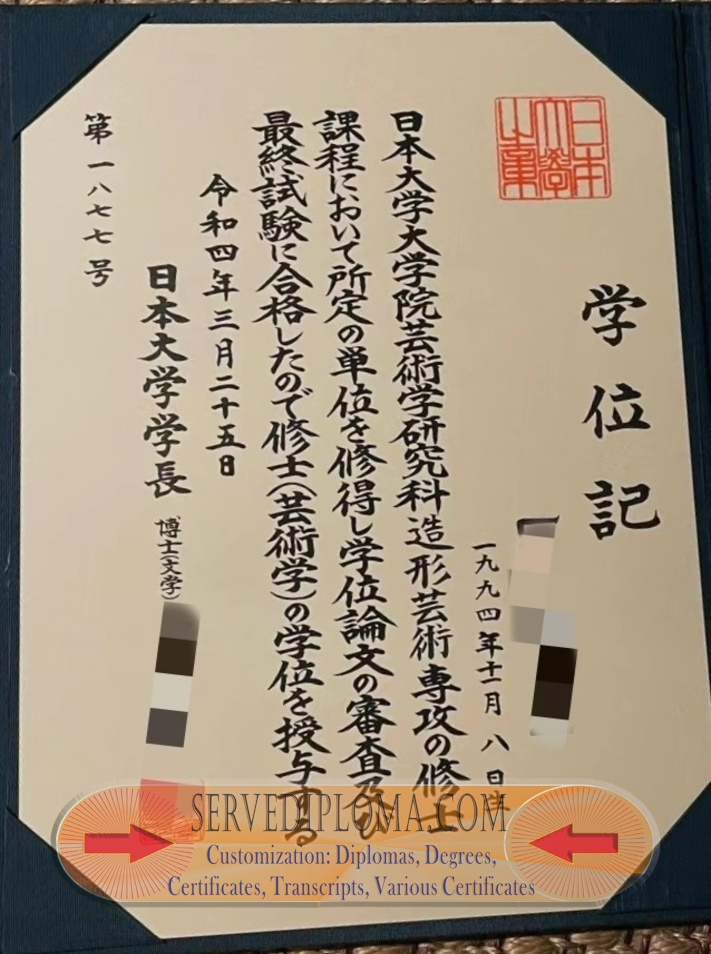 日本
大學
之章
学位記
一九九四年十一月八日生
日本大学大学院芸術学研究科造形芸術専攻の修士
課程において所定の単位を修得し学位論文の審査及び
最終試験に合格したので修士(芸術学)の学位を授与する
令和四年三月二十五日
日本大学学長
博士(文学)
第一八七七号
SERVEDIPLOMA.COM
Customization: Diplomas, Degrees,
Certificates, Transcripts, Various Certificates